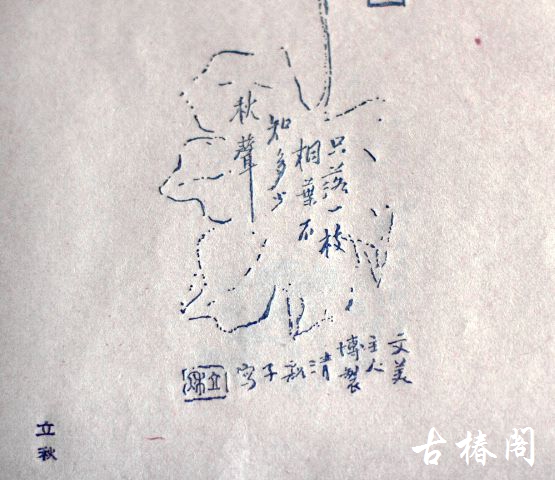 只落一枝
相葉不
知多少
秋聲
文美
主人
博製
清
子寫
立秋
古椿阁